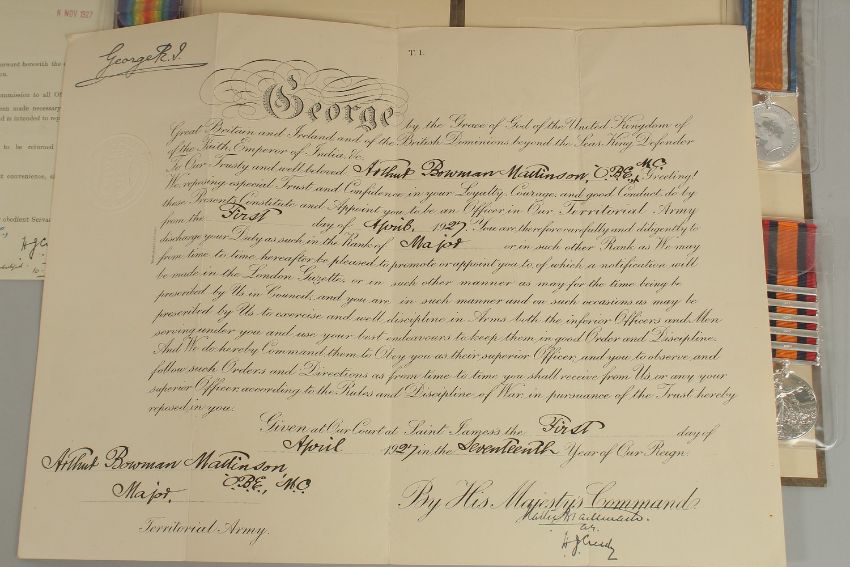 6 NOV 1927
George R.I.
T. 1.
George by the Grace of God of the United Kingdom of
Great Britain and Ireland and of the British Dominions beyond the Seas King Defender
of the Faith, Emperor of India, &c.
To Our Trusty and well beloved Arthur Bowman Mattinson, C.B.E., M.C. Greeting!
We, reposing especial Trust and Confidence in your Loyalty, Courage, and good Conduct, do by
these Presents Constitute and Appoint you to be an Officer in Our Territorial Army
from the First day of April, 1927. You are therefore carefully and diligently to
discharge your Duty as such in the Rank of Major or in such other Rank as We may
from time to time hereafter be pleased to promote or appoint you to, of which a notification will
be made in the London Gazette, or in such other manner as may for the time being be
prescribed by Us in Council, and you are in such manner and on such occasions as may be
prescribed by Us to exercise and well discipline in Arms both the inferior Officers and Men
serving under you and use your best endeavours to keep them in good Order and Discipline.
And We do hereby Command them to Obey you as their superior Officer, and you to observe and
follow such Orders and Directions as from time to time you shall receive from Us, or any your
superior Officer, according to the Rules and Discipline of War, in pursuance of the Trust hereby
reposed in you.
Given at Our Court at Saint James's the First day of
April 1927 in the Seventeenth Year of Our Reign.
Arthur Bowman Mattinson,
C.B.E., M.C.
Major.
Territorial Army.
By His Majesty's Command
H J Creedy
orward beneath the
ommission to all Of
een made necessary
d is intended to rep
to be returned
t convenience,
obedient Servant